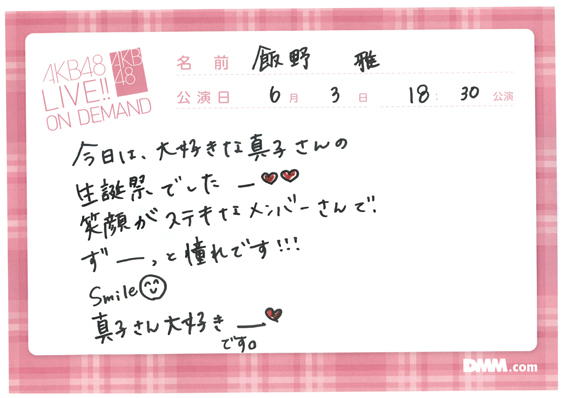 AKB48
LIVE!!
ON DEMAND
AKB
48
名前 飯野 雅
公演日 6月 3日 18:30 公演
今日は、大好きな真子さんの
生誕祭でした ー♥♥
笑顔がステキなメンバーさんで!
ずーっと憧れです!!!
Smile☺
真子さん大好きー♥
です。
DMM.com